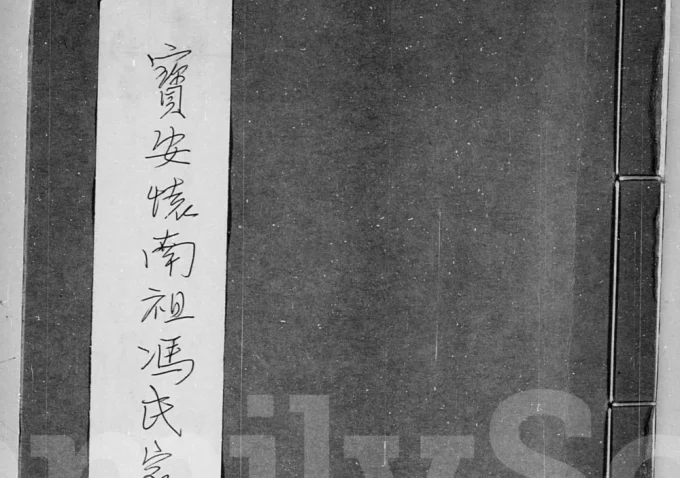 寶安懷南祖馮氏家
milySe